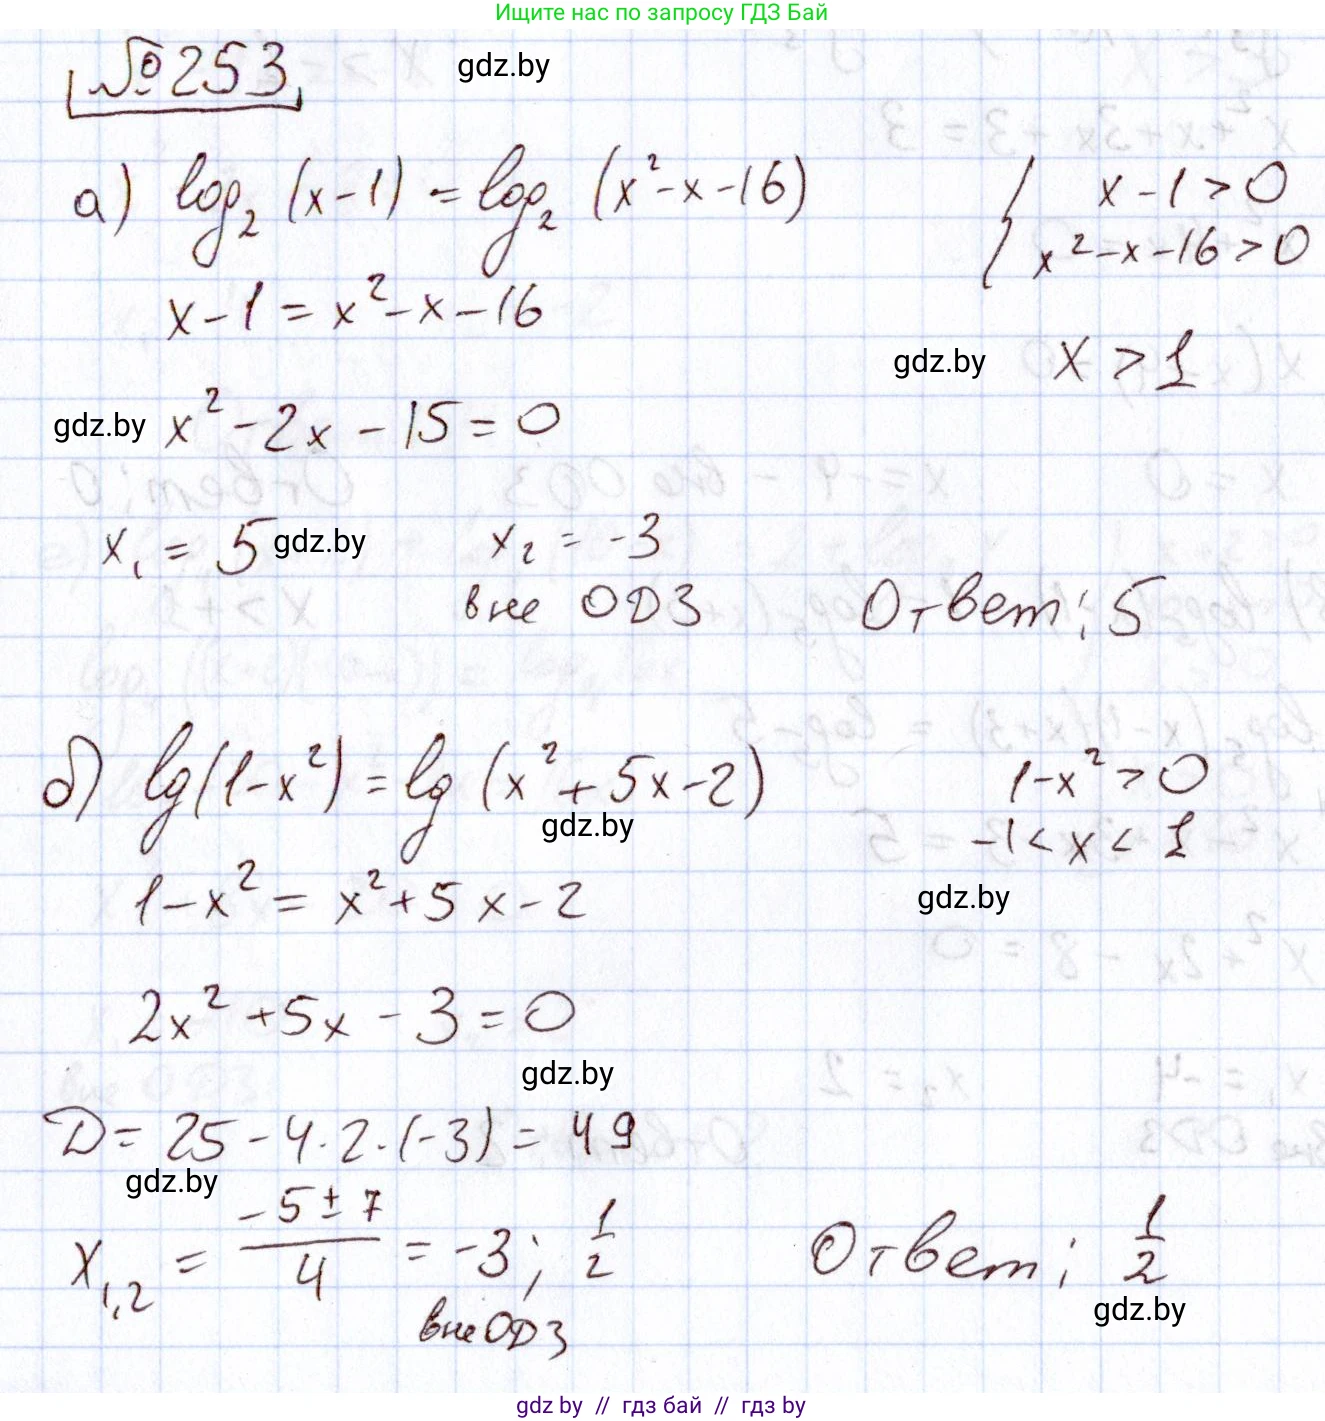 Ищите нас по запросу ГДЗ Бай
№253 gdz.by
а) log₂ (x-1) = log₂ (x²-x-16) { x-1>0
x²-x-16>0
x-1 = x²-x-16
gdz.by x > 1
gdz.by x² - 2x - 15 = 0
x₁ = 5 gdz.by x₂ = -3
вне ОДЗ Ответ: 5
б) lg(1-x²) = lg (x² + 5x - 2) 1-x² > 0
gdz.by -1 < x < 1
1-x² = x² + 5x - 2 gdz.by
2x² + 5x - 3 = 0
gdz.by
D = 25 - 4·2·(-3) = 49
gdz.by
x₁,₂ = (-5 ± 7)/4 = -3; 1/2 Ответ: 1/2
вне ОДЗ gdz.by
gdz by // гдз бай // гдз by